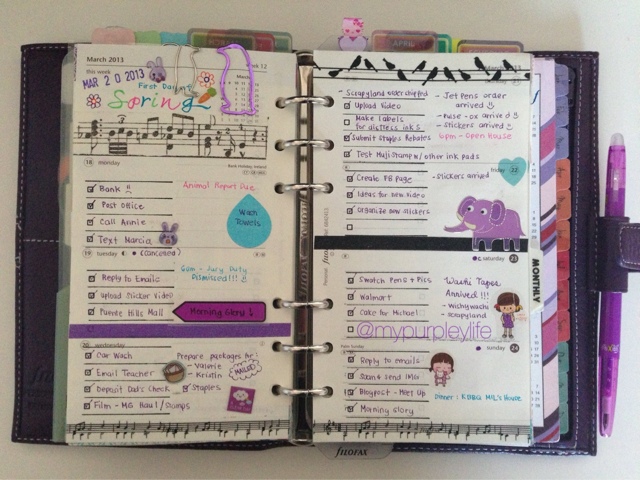 March 2013
this week
MAR 20 2013
First Day of
Spring
18 monday
Bank Holiday Ireland
Bank
Animal Report Due
Post Office
Call Annie
Wash
Towels
Text Marcia
19 tuesday
(cancelled)
6am - Jury Duty
Dismissed!!!
Reply to Emails
Upload Sticker Video
Puente Hills Mall
Morning Glory
20 wednesday
Car Wash
Prepare packages for:
- Valerie
- Kristin
MAILED
Email Teacher
Deposit Dad's Check
Staples
Film - MG Haul / Stamps
APRIL
Scrapyland order shipped
Upload Video
Make labels
for distress inks
Submit Staples Rebates
Test Muji Stamp w/ other ink pads
- JetPens order
arrived
- Fuse-ox arrived
- Stickers arrived
6pm - Open House
friday 22
Create PB page
- Stickers arrived
Ideas for new video
Organize new stickers
saturday 23
Swatch Pens + Pics
Walmart
Cake for Michael
Washi Tapes
Arrived!!!
- Wishywashi
- Scrapyland
MONTHLY
@mypurpleylife
Palm Sunday
sunday 24
Reply to emails
Scan & send IMG
Blogpost - Meet Up
Morning Glory
Dinner: KBBQ MIL's House
filofax